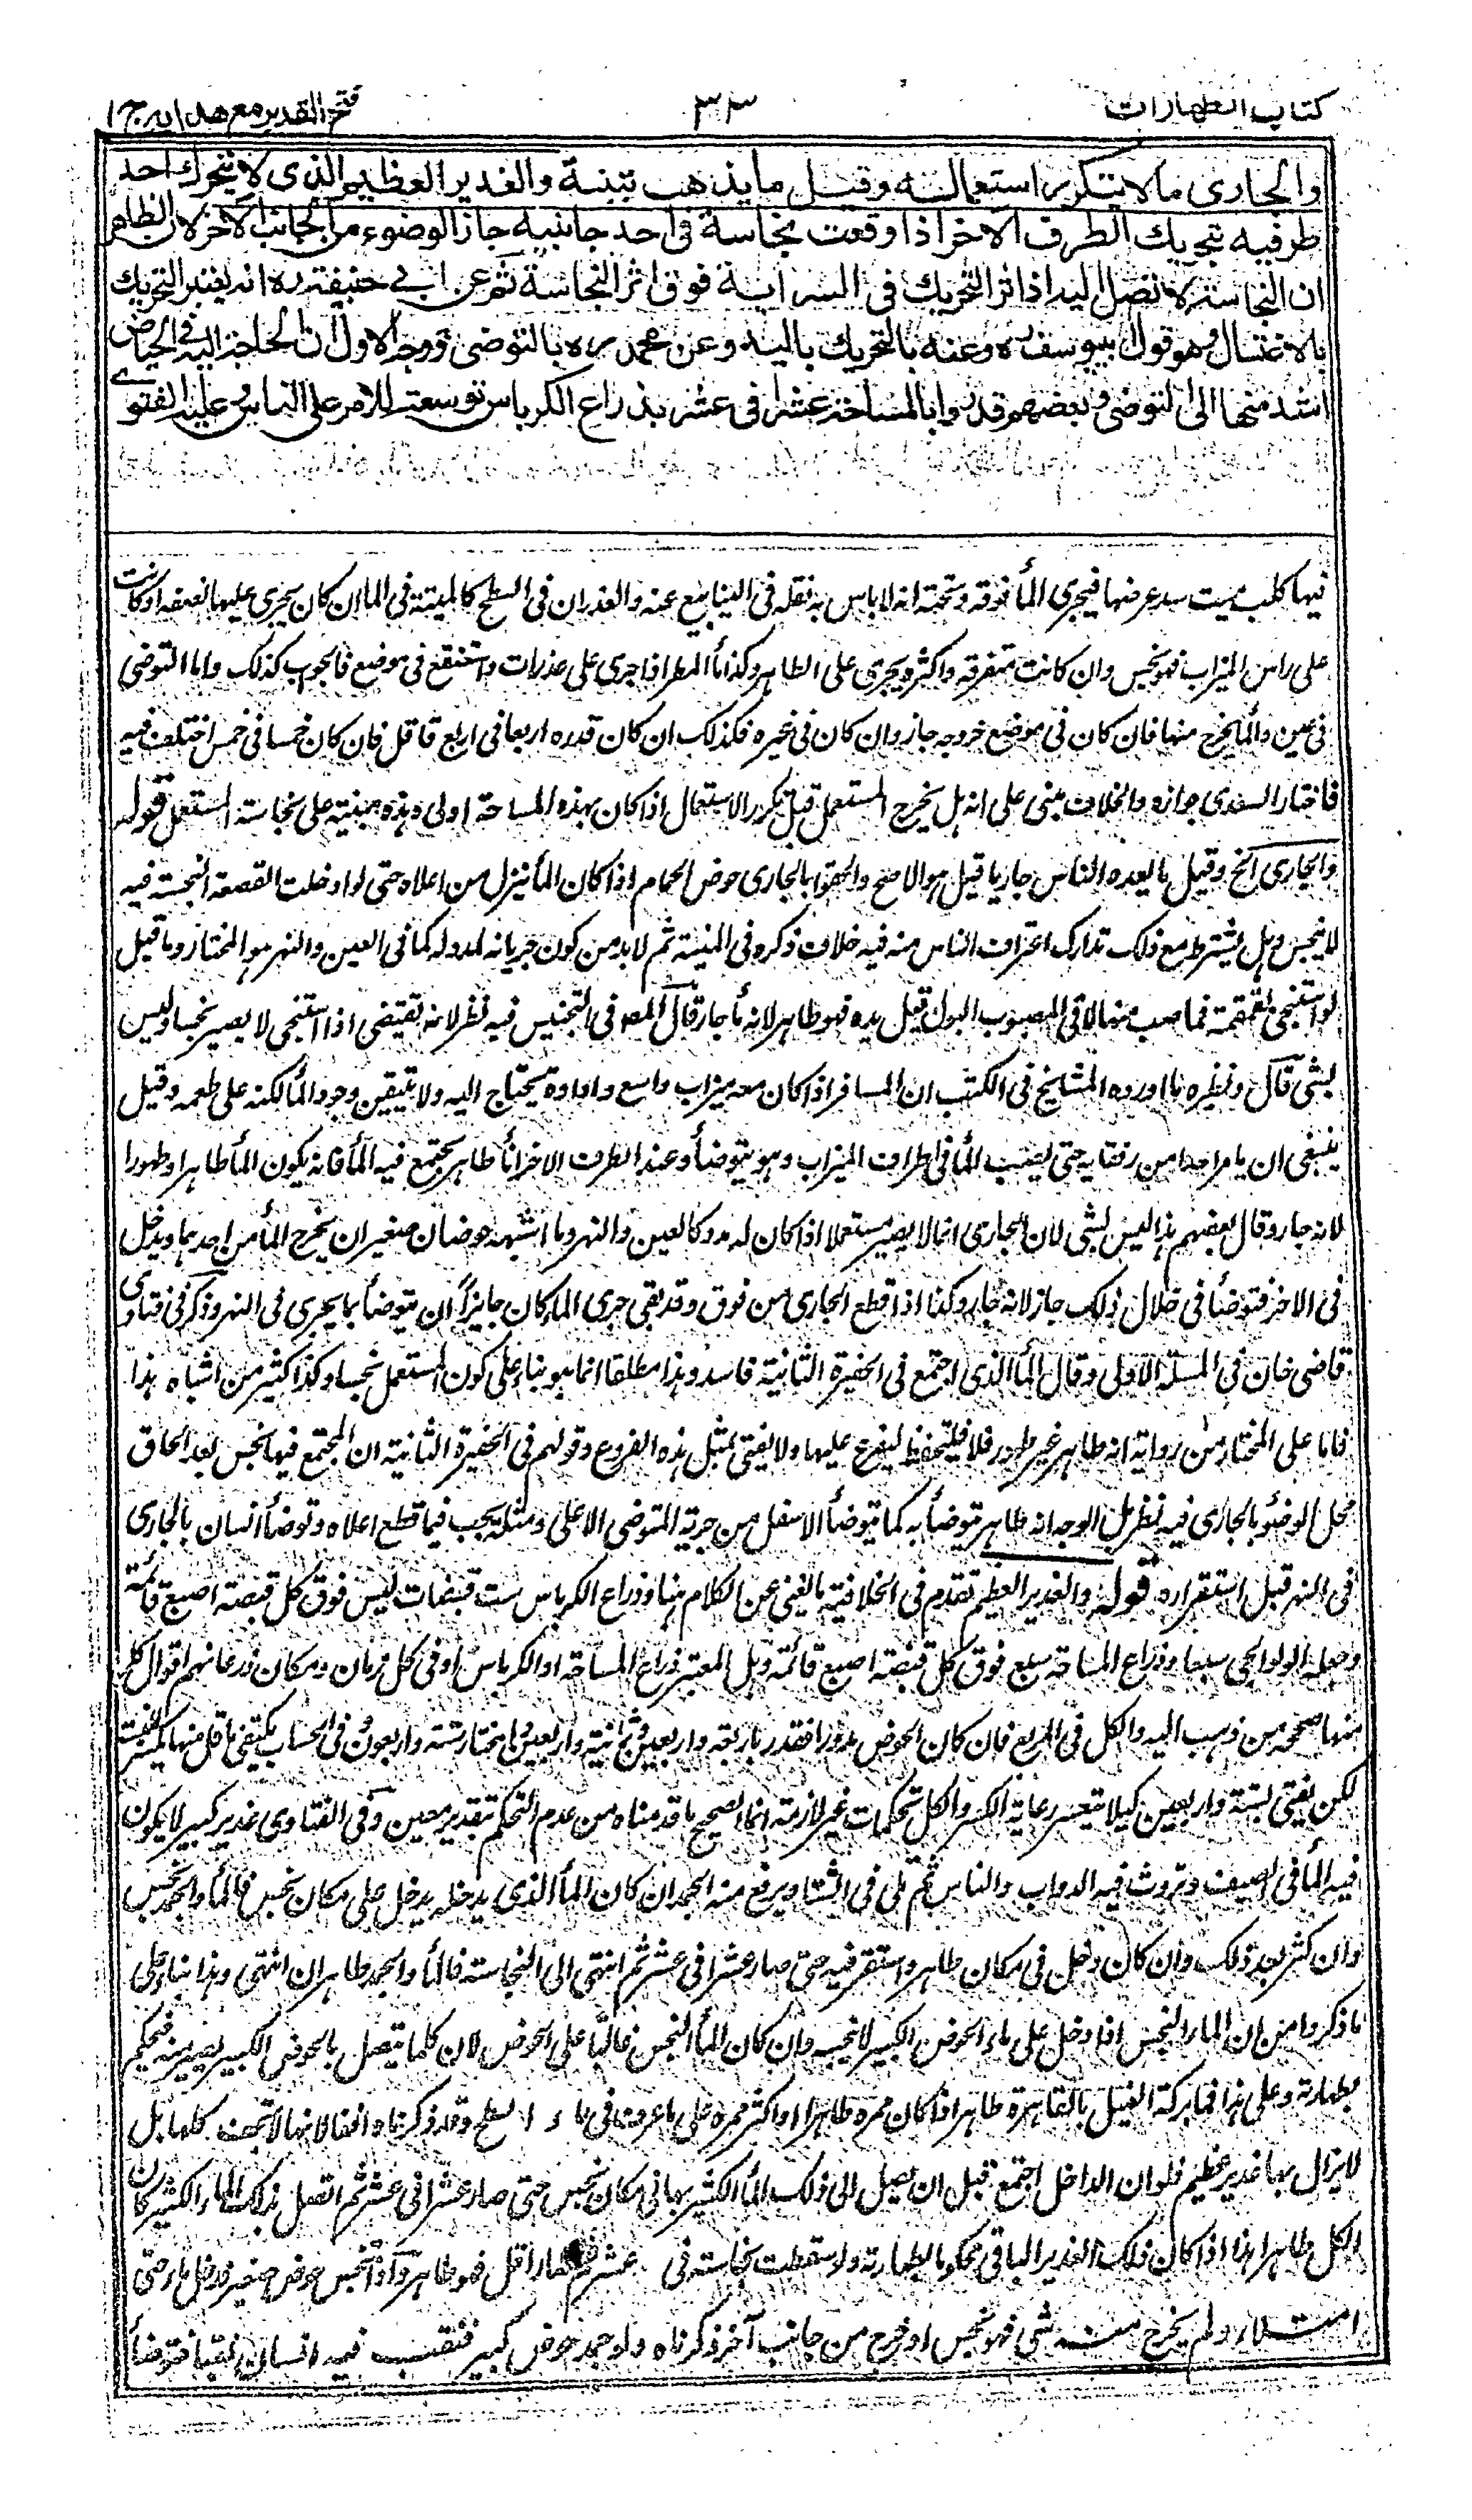 كتاب الطهارات
٣٣
فتح القدير مع هدايه ج ١
والجارى مالا يتكرر استعماله وقيل ما يذهب بتبنة والغدير العظيم الذى لا يتحرك احد
طرفيه بتحريك الطرف الآخر اذا وقعت نجاسة فى احد جانبيه جاز الوضوء من الجانب الآخر لان الظاهر
ان النجاسة لا تصل اليه اذ اثر التحريك فى السراية فوق اثر النجاسة ثم عن ابي حنيفة ره انه يعتبر التحريك
بالاغتسال وهو قول ابييوسف ره وعنه بالتحريك باليد وعن محمد ره بالتوضى ووجه الاول ان الحاجة اليه فى الحياض
اشد منها الى التوضى وبعضهم قدروا بالمساحة عشرا فى عشر بذراع الكرباس توسعة للامر على الناس وعليه الفتوى
فيها كلب ميت سد عرضها فيجرى الماء فوقه وتحته انه لا باس به نقله فى الينابيع عنه والعذران فى السطح كالميتة فى الماء ان كان يجرى عليها نصفه او كانت
على راس الميزاب فهو نجس وان كانت متفرقة واكثره يجرى على الطاهر وكذا ماء المطر اذا جرى على عذرات واستنقع فى موضع فالجواب كذلك واما التوضى
فى عين والماء يخرج منها فان كان فى موضع خروجه جاز وان كان فى غيره فكذلك ان كان قدره اربعا فى اربع فاقل فان كان خمسا فى خمس اختلف فيه
فاختار السغدى جوازه والخلاف مبنى على انه هل يخرج المستعمل قبل تكرر الاستعمال اذا كان بهذه المساحة اولى وهذه مبنية على نجاسة المستعمل قوله
والجارى الخ وقيل ما يعده الناس جاريا قيل هو الاصح والحقوا بالجارى حوض الحمام اذا كان الماء ينزل من اعلاه حتى لو ادخلت القصعة النجسة فيه
لا ينجس وهل يشترط مع ذلك تدارك اغتراف الناس منه فيه خلاف ذكره فى المنية ثم لا بد من كون جريانه لمدد له كما فى العين والنهر هو المختار وما قيل
لو استنجى بقمقمة فما صب منها لاقى المصبوب البول قبل يده فهو طاهر لانه ماء جار قال المصـ فى التجنيس فيه نظر لانه يقتضى اذا استنجى لا يصير نجسا وليس
بشى قال ونظيره ما اورده المشايخ فى الكتب ان المسافر اذا كان معه ميزاب واسع واداوة ماء يحتاج اليه ولا يتيقن وجود الماء لكنه على طمعه وقيل
ينبغى ان يامر احدا من رفقايه حتى يصب الماء فى اطراف الميزاب وهو يتوضأ وعند الطرف الاخر اناء طاهر يجتمع فيه الماء فانه يكون الماء طاهرا وطهورا
لانه جار وقال بعضهم هذا ليس بشى لان الجارى انما لا يصير مستعملا اذا كان له مدد كالعين والنهر وما اشبهه حوضان صغيران يخرج الماء من احدهما ويدخل
فى الاخر فتوضأ فى خلال ذلك جاز لانه جار وكذا اذا قطع الجارى من فوق وقد بقى جرى الماء كان جايزا ان يتوضأ بما يجرى فى النهر وذكر فى فتاوى
قاضى خان فى المسئلة الاولى وقال الماء الذى اجتمع فى الحفيرة الثانية فاسد وهذا مطلقا انما هو بناء على كون المستعمل نجسا وكذا كثير من اشباه هذا
فاما على المختار من رواية انه طاهر غير طهور فلا فليحفظ ليفرع عليها ولا يفتى بمثل هذه الفروع وقولهم فى الحفيرة الثانية ان المجتمع فيها نجس بعد الحاق
محل الوضوء بالجارى فيه نظر بل الوجه انه طاهر يتوضأ به كما يتوضأ الاسفل من جرية المتوضى الاعلى ومثله يجب فيما قطع اعلاه وتوضأ انسان بالجارى
فى النهر قبل استقراره قوله والغدير العظيم تقدم فى الخلافية ما يغنى عن الكلام هنا وذراع الكرباس ست قبضات ليس فوق كل قبضة اصبع قائمة
وجعله الولوالجى سبعا وذراع المساحة سبع فوق كل قبضة اصبع قائمة وهل المعتبر ذراع المساحة او الكرباس او فى كل زمان ومكان ذرعانهم اقوال كل
منها صححه من ذهب اليه والكل فى المربع فان كان الحوض مدورا فقدر باربعة واربعين وثمانية واربعين والمختار ستة واربعون وفى الحساب يكتفى باقل منها بكسر للنسبة
لكن يفتى بستة واربعين كيلا يتعسر رعاية الكسر والكل تحكمات غير لازمة انما الصحيح ما قدمناه من عدم التحكم بتقدير معين وفى الفتاوى غدير كبير لا يكون
فيه الماء فى الصيف وتروث فيه الدواب والناس ثم يملى فى الشتاء ويرفع منه الجمد ان كان الماء الذى يدخله يدخل على مكان نجس فالماء والجمد نجس
وان كثر بعد ذلك وان كان دخل فى مكان طاهر واستقر فيه حتى صار عشرا فى عشر ثم انتهى الى النجاسة فالماء والجمد طاهران انتهى وهذا بناء على
ما ذكروا من ان الماء النجس اذا دخل على ماء الحوض الكبير لا ينجسه وان كان الماء النجس غالبا على الحوض لان كلما يتصل بالحوض الكبير يصير منه فيحكم
بطهارته وعلى هذا فماء بركة الفيل بالقاهرة طاهر اذا كان ممره طاهرا او اكثر ممره على ما عرف فى ماء السطح وقد ذكرناه انفا لانها لا تجف كلها بل
لا يزال بها غدير عظيم فلو ان الداخل اجتمع قبل ان يصل الى ذلك الماء الكثير بها فى مكان نجس حتى صار عشرا فى عشر ثم اتصل بذلك الماء الكثير كان
الكل طاهرا هذا اذا كان ذلك الغدير الباقى محكوما بطهارته ولو سقطت نجاسة فى عشر ثم صار اقل فهو طاهر وكذا تنجس حوض صغير فدخل ماء حتى
امتلاء ولم يخرج منه شى فهو نجس او خرج من جانب آخر ذكرناه ولو جمد حوض كبير فنقب فيه انسان نقبا فتوضأ